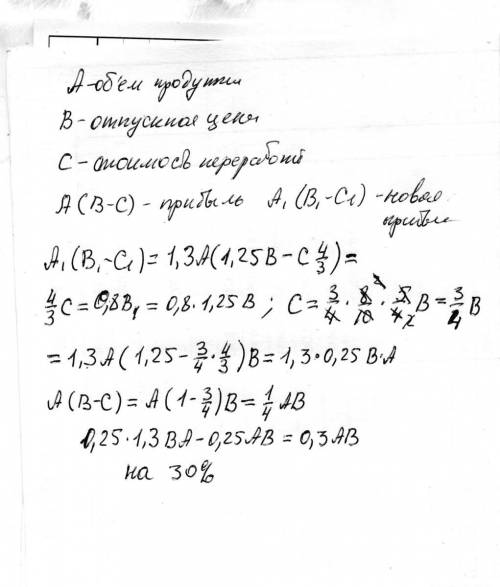 A - об'ем продукции
B - отпускная цена
C - стоимость переработки
A (B - C) - прибыль A₁ (B₁ - C₁) - новая прибыль
A₁ (B₁ - C₁) = 1,3A (1,25B - C 4/3) =
4/3 C = 0,8B₁ = 0,8 · 1,25 B ; C = 3/4 · 8/10 · 5/4 B = 3/4 B
= 1,3A (1,25 - 3/4 · 4/3) B = 1,3 · 0,25 B · A
A (B - C) = A (1 - 3/4) B = 1/4 AB
0,25 · 1,3 BA - 0,25 AB = 0,3 AB
на 30%